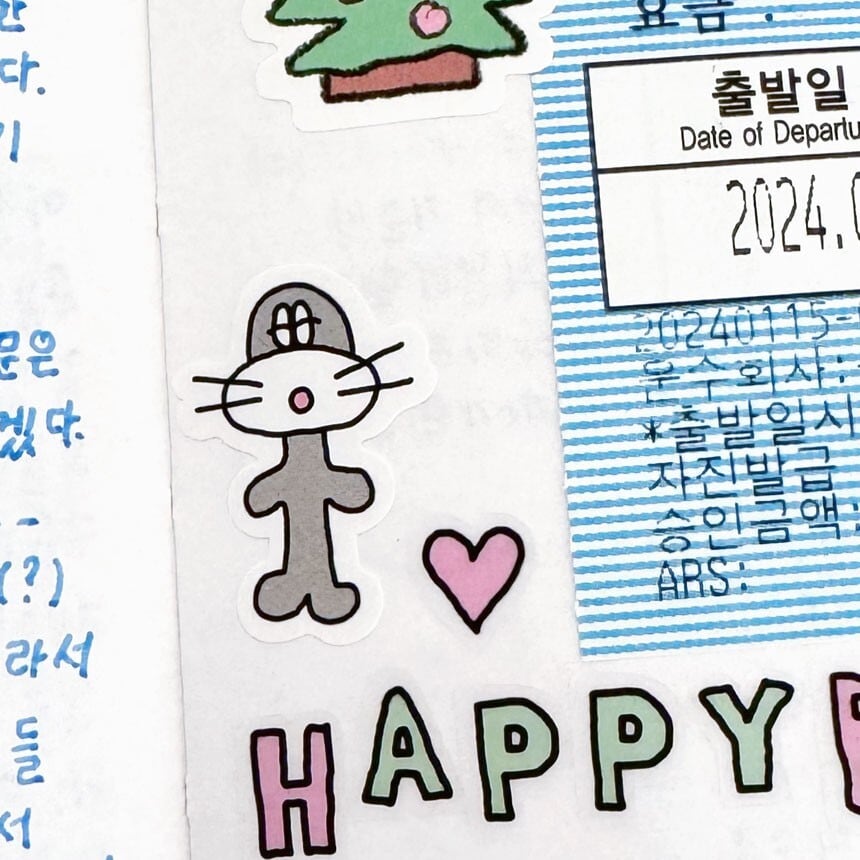 다.
기
문은
겠다.
--
(?)
라서
들
서
요금 :
출발일
Date of Departu
2024.0
20240115-
운수회사:
*출발일시
자진발급
승인금액:
ARS:
HAPPY